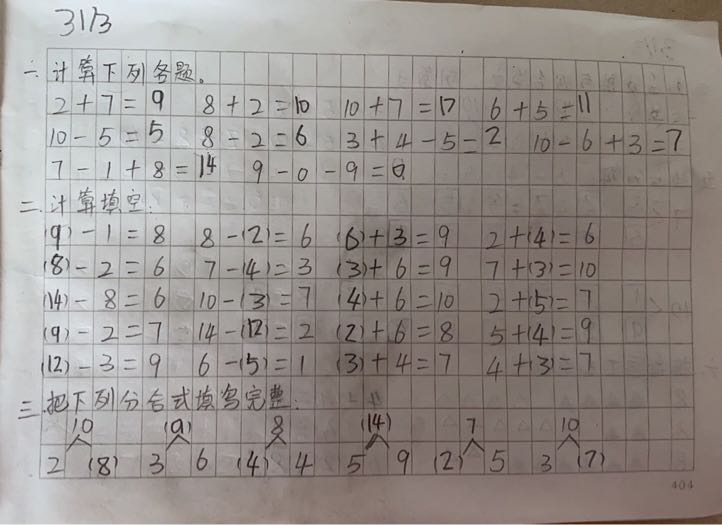 31/3
一、计算下列各题。
2+7=9 8+2=10 10+7=17 6+5=11
10-5=5 8-2=6 3+4-5=2 10-6+3=7
7-1+8=14 9-0-9=0
二.计算填空:
(9)-1=8 8-(2)=6 (6)+3=9 2+(4)=6
(8)-2=6 7-(4)=3 (3)+6=9 7+(3)=10
(14)-8=6 10-(3)=7 (4)+6=10 2+(5)=7
(9)-2=7 14-(12)=2 (2)+6=8 5+(4)=9
(12)-3=9 6-(5)=1 (3)+4=7 4+(3)=7
三.把下列分合式填写完整:
10 (9) 8 (14) 7 10
2 (8) 3 6 (4) 4 5 9 (2) 5 3 (7)
404